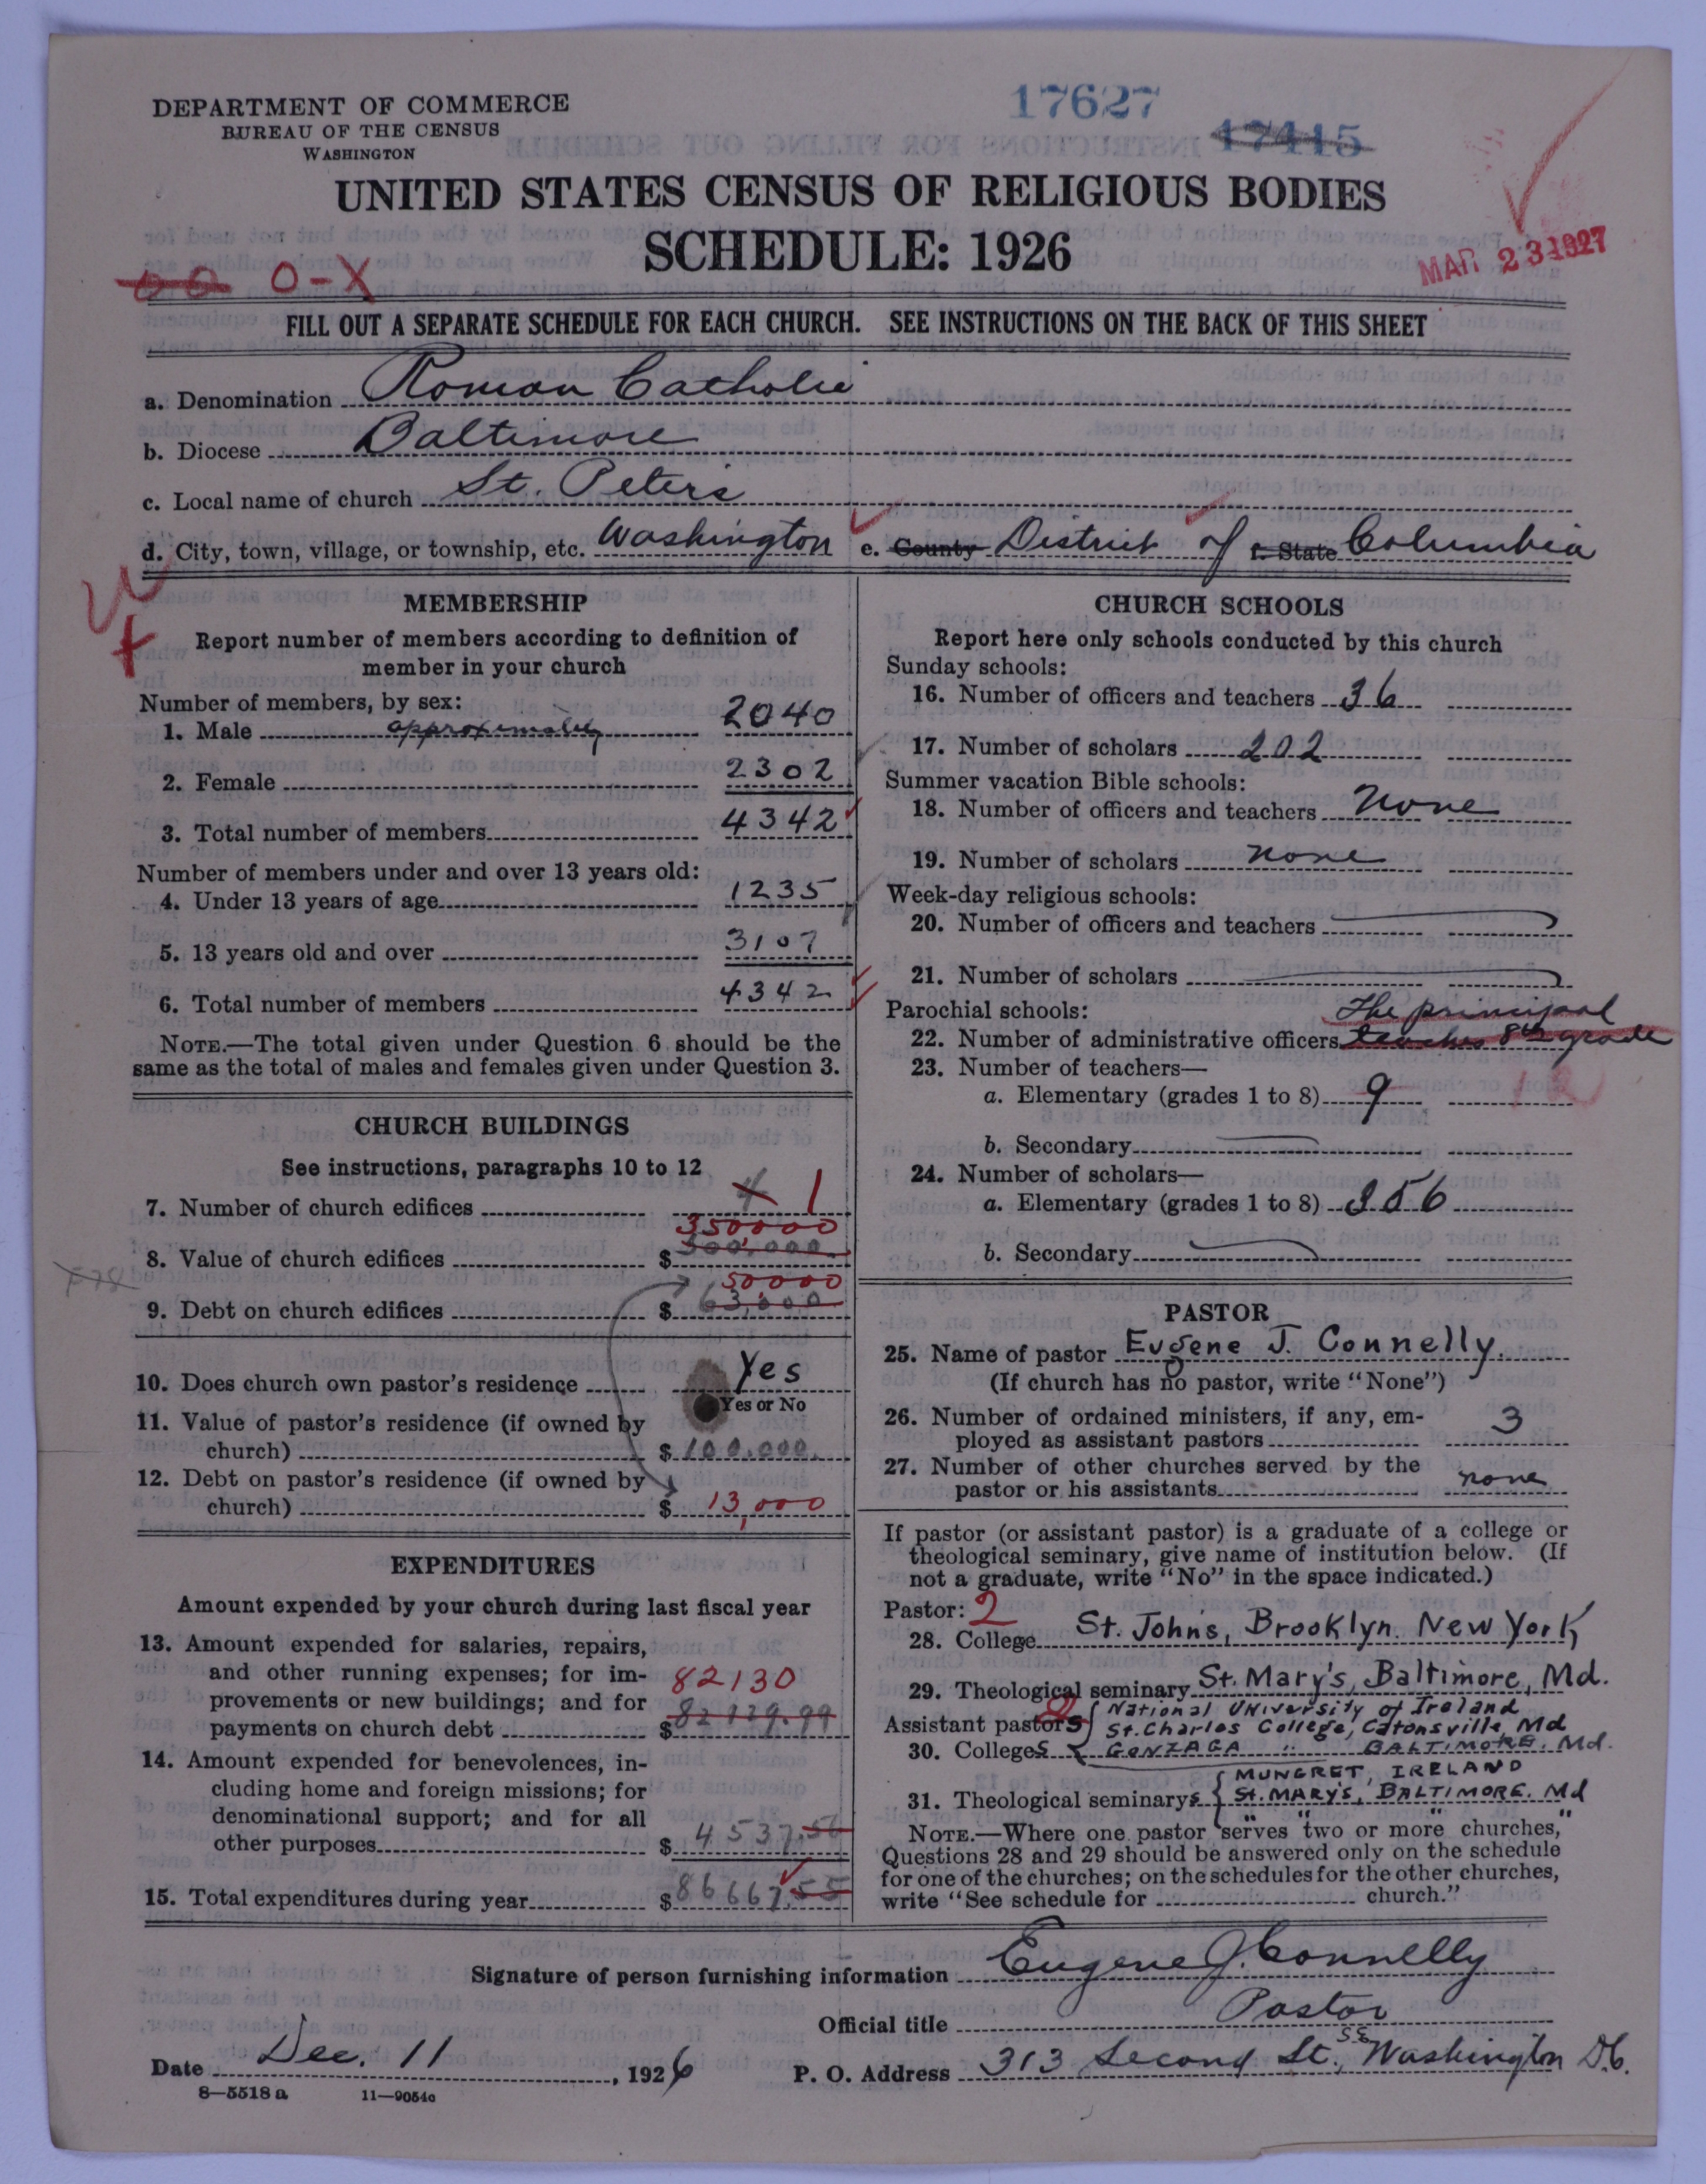 DEPARTMENT OF COMMERCE
BUREAU OF THE CENSUS
WASHINGTON
17627
17415
UNITED STATES CENSUS OF RELIGIOUS BODIES
SCHEDULE: 1926
MAR 23 1927
O-X
FILL OUT A SEPARATE SCHEDULE FOR EACH CHURCH. SEE INSTRUCTIONS ON THE BACK OF THIS SHEET
a. Denomination Roman Catholic
b. Diocese Baltimore
c. Local name of church St. Peter's
d. City, town, village, or township, etc. Washington e. County District of f. State Columbia
MEMBERSHIP
Report number of members according to definition of
member in your church
Number of members, by sex:
1. Male approximately 2040
2. Female 2302
3. Total number of members 4342
Number of members under and over 13 years old:
4. Under 13 years of age 1235
5. 13 years old and over 3107
6. Total number of members 4342
NOTE.—The total given under Question 6 should be the
same as the total of males and females given under Question 3.
CHURCH BUILDINGS
See instructions, paragraphs 10 to 12
7. Number of church edifices 4 1
350,000
8. Value of church edifices $ 300,000.
50,000
9. Debt on church edifices $ 63,000
10. Does church own pastor's residence Yes
Yes or No
11. Value of pastor's residence (if owned by
church) $ 100,000.
12. Debt on pastor's residence (if owned by
church) $ 13,000
EXPENDITURES
Amount expended by your church during last fiscal year
13. Amount expended for salaries, repairs,
and other running expenses; for im-
provements or new buildings; and for 82130
payments on church debt $ 82129.99
14. Amount expended for benevolences, in-
cluding home and foreign missions; for
denominational support; and for all
other purposes $ 4537.56
15. Total expenditures during year $ 86667.55
CHURCH SCHOOLS
Report here only schools conducted by this church
Sunday schools:
16. Number of officers and teachers 36
17. Number of scholars 202
Summer vacation Bible schools:
18. Number of officers and teachers None
19. Number of scholars None
Week-day religious schools:
20. Number of officers and teachers
21. Number of scholars
Parochial schools: The principal
22. Number of administrative officers teaches 8th grade
23. Number of teachers—
a. Elementary (grades 1 to 8) 9
b. Secondary
24. Number of scholars—
a. Elementary (grades 1 to 8) 356
b. Secondary
PASTOR
25. Name of pastor Eugene J. Connelly.
(If church has no pastor, write "None")
26. Number of ordained ministers, if any, em-
ployed as assistant pastors 3
27. Number of other churches served by the
pastor or his assistants none
If pastor (or assistant pastor) is a graduate of a college or
theological seminary, give name of institution below. (If
not a graduate, write "No" in the space indicated.)
Pastor: 2
28. College St. John's, Brooklyn. New York
29. Theological seminary St. Mary's, Baltimore, Md.
National University of Ireland
Assistant pastors St. Charles College, Catonsville, Md
30. Colleges GONZAGA " BALTIMORE. Md.
MUNGRET, IRELAND
31. Theological seminarys St. MARY'S, BALTIMORE. Md
" " " "
NOTE.—Where one pastor serves two or more churches,
Questions 28 and 29 should be answered only on the schedule
for one of the churches; on the schedules for the other churches,
write "See schedule for church."
Signature of person furnishing information Eugene J. Connelly
Official title Pastor
Date Dec. 11, 1926 P. O. Address 313 Second St., S.E. Washington D.C.
8—5518 a 11—9054c